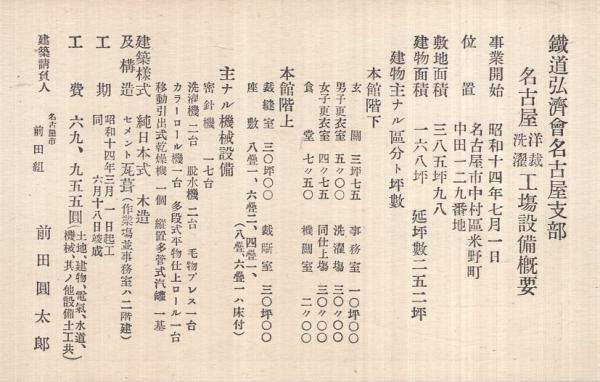 鐵道弘濟會名古屋支部
名古屋 洋裁 洗濯 工場設備概要
事業開始 昭和十四年七月一日
位置 名古屋市中村區米野町
中田一二九番地
敷地面積 三八五坪九八
建物面積 一六八坪 延坪數二五二坪
建物主ナル區分ト坪數
本館階下
玄關 三坪七五 事務室 一〇坪〇〇
男子更衣室 五〃〇〇 洗濯場 三〇〃〇〇
女子更衣室 四〃七五 同仕上場 三〇〃〇〇
食堂 七〃五〇 機關室 二〃〇〇
本館階上
裁縫室 三〇坪〇〇 裁斷室 三〇坪〇〇
座敷 八疊一、六疊二、四疊一、(八疊、六疊一ハ床付)
主ナル機械設備
密針機 一七台
洗濯機 二台 脫水機 二台 毛物プレス 一台
カラーロール機 一台 多段式平物仕上ロール 一台
移動引出式乾燥機 一個 縱置多管式汽罐 一基
建築樣式及構造 純日本式 木造
セメント瓦葺(作業場並事務室ハ二階建)
工期 昭和十四年三月一日起工
同 六月十八日竣成
工費 六九、九五五圓(土地、建物、電氣、水道、機械、其ノ他設備士工共)
建築請負人 名古屋市 前田組 前田圓太郎